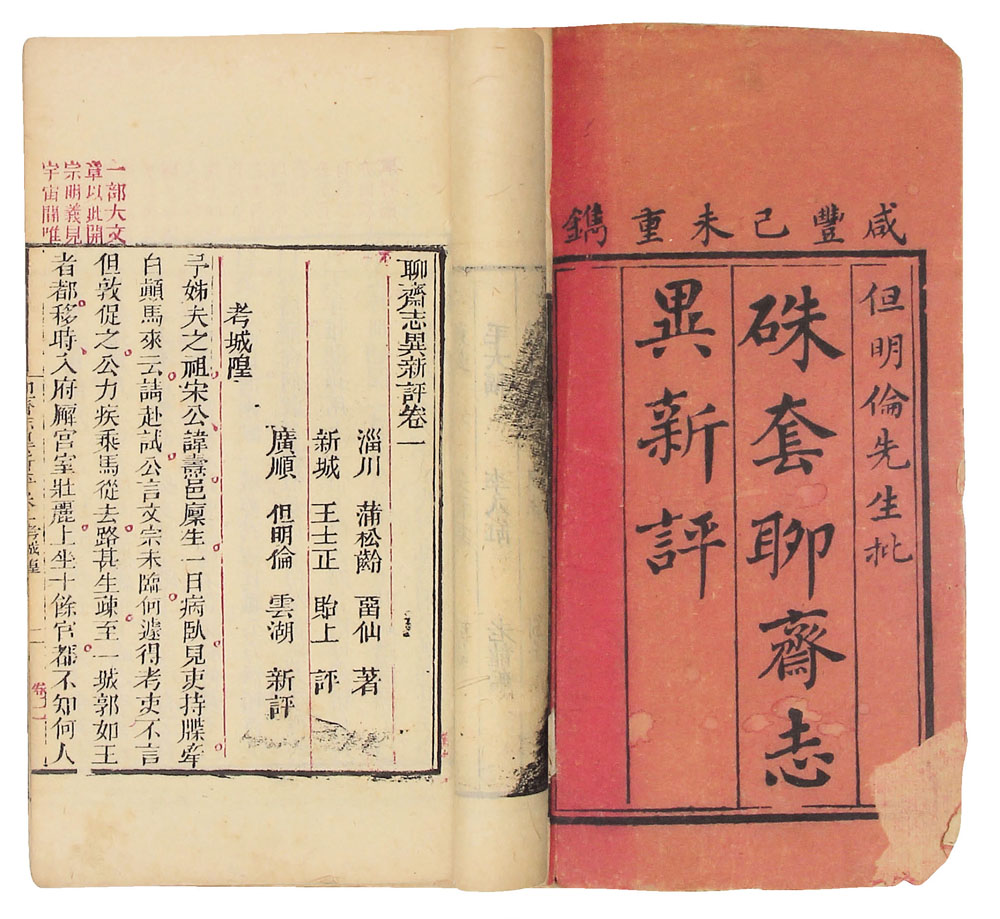 咸豐己未重鐫
但明倫先生批
硃套聊齋志
異新評
聊齋志異新評卷一
淄川 蒲松齡 畱仙 著
新城 王士正 貽上 評
廣順 但明倫 雲湖 新評
考城隍
予姊夫之祖宋公諱燾邑廩生一日病臥見吏持牒牽
白顛馬來云請赴試公言文宗未臨何遽得考吏不言
但敦促之公力疾乘馬從去路甚生疎至一城郭如王
者都移時入府廨宮室壯麗上坐十餘官都不知何人
一部大文
章以此開
宗明義見
宇宙間惟
考城隍